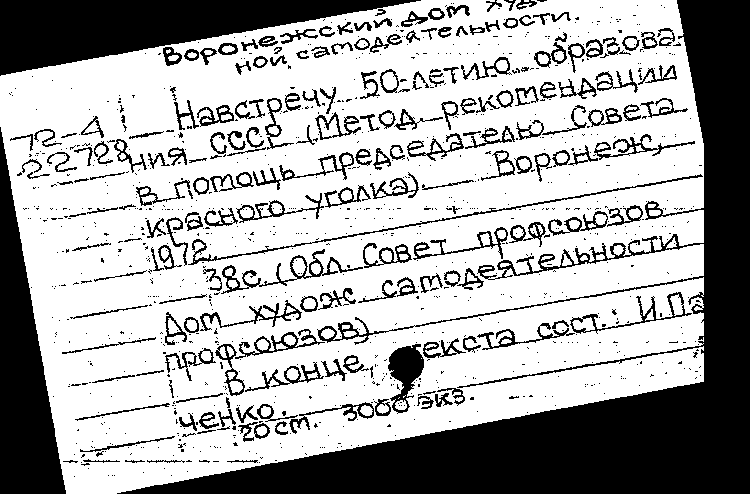 Воронежский дом худо
ной самодеятельности.
72-4
22728
Навстречу 50-летию образова-
ния СССР (Метод. рекомендации
в помощь председателю Совета
красного уголка). Воронеж,
1972.
38с. (Обл. Совет профсоюзов
Дом худож. самодеятельности
профсоюзов).
В конце текста сост.: И.Па
ченко.
20см. 3000 экз.